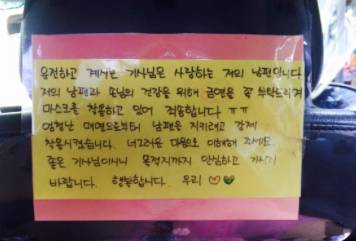 운전하고 계시는 기사님은 사랑하는 저의 남편입니다
저의 남편과 손님의 건강을 위해 금연을 꼭 부탁드리며
마스크를 착용하고 있어 죄송합니다 ㅠㅠ
엄청난 매연으로부터 남편을 지키려고 강제
착용시켰습니다. 너그러운 마음으로 이해해 주세요.
좋은 기사님이시니 목적지까지 안심하고 가시기
바랍니다. 행복합니다. 우리 ♡♡